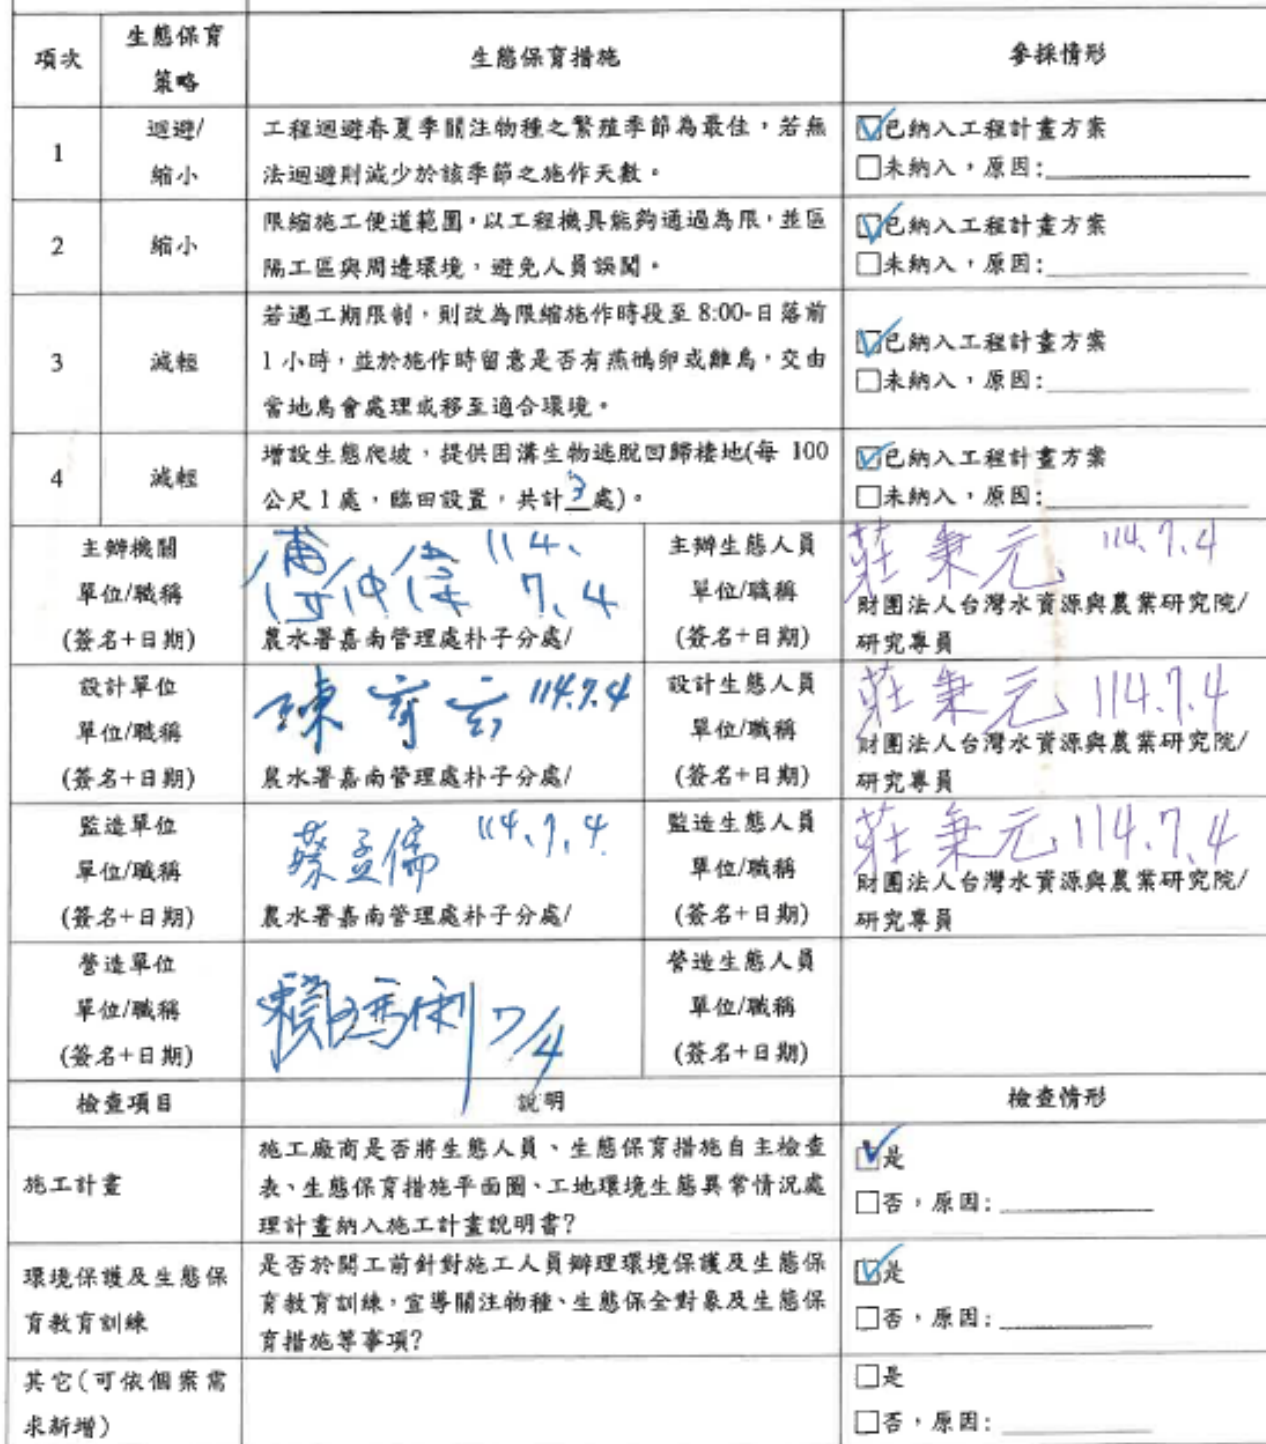 項次
生態保育
策略
生態保育措施
參採情形
1
迴避/
縮小
工程迴避春夏季關注物種之繁殖季節為最佳，若無
法迴避則減少於該季節之施作天數。
☑已納入工程計畫方案
□未納入，原因:
2
縮小
限縮施工便道範圍，以工程機具能夠通過為限，並區
隔工區與周邊環境，避免人員誤闖。
☑已納入工程計畫方案
□未納入，原因:
3
減輕
若遇工期限制，則改為限縮施作時段至 8:00-日落前
1 小時，並於施作時留意是否有燕鴴卵或雛鳥，交由
當地鳥會處理或移至適合環境。
☑已納入工程計畫方案
□未納入，原因:
4
減輕
增設生態爬坡，提供困溝生物逃脫回歸棲地(每 100
公尺 1 處，臨田設置，共計3處)。
☑已納入工程計畫方案
□未納入，原因:
主辦機關
單位/職稱
(簽名+日期)
傅仲偉 114.
7.4
農水署嘉南管理處朴子分處/
主辦生態人員
單位/職稱
(簽名+日期)
莊秉元 114.7.4
財團法人台灣水資源與農業研究院/
研究專員
設計單位
單位/職稱
(簽名+日期)
陳 114.7.4
農水署嘉南管理處朴子分處/
設計生態人員
單位/職稱
(簽名+日期)
莊秉元 114.7.4
財團法人台灣水資源與農業研究院/
研究專員
監造單位
單位/職稱
(簽名+日期)
蔡孟儒 114.7.4
農水署嘉南管理處朴子分處/
監造生態人員
單位/職稱
(簽名+日期)
莊秉元 114.7.4
財團法人台灣水資源與農業研究院/
研究專員
營造單位
單位/職稱
(簽名+日期)
賴 7/4
營造生態人員
單位/職稱
(簽名+日期)
檢查項目
說明
檢查情形
施工計畫
施工廠商是否將生態人員、生態保育措施自主檢查
表、生態保育措施平面圖、工地環境生態異常情況處
理計畫納入施工計畫說明書?
☑是
□否，原因:
環境保護及生態保
育教育訓練
是否於開工前針對施工人員辦理環境保護及生態保
育教育訓練，宣導關注物種、生態保全對象及生態保
育措施等事項?
☑是
□否，原因:
其它(可依個案需
求新增)
□是
□否，原因: